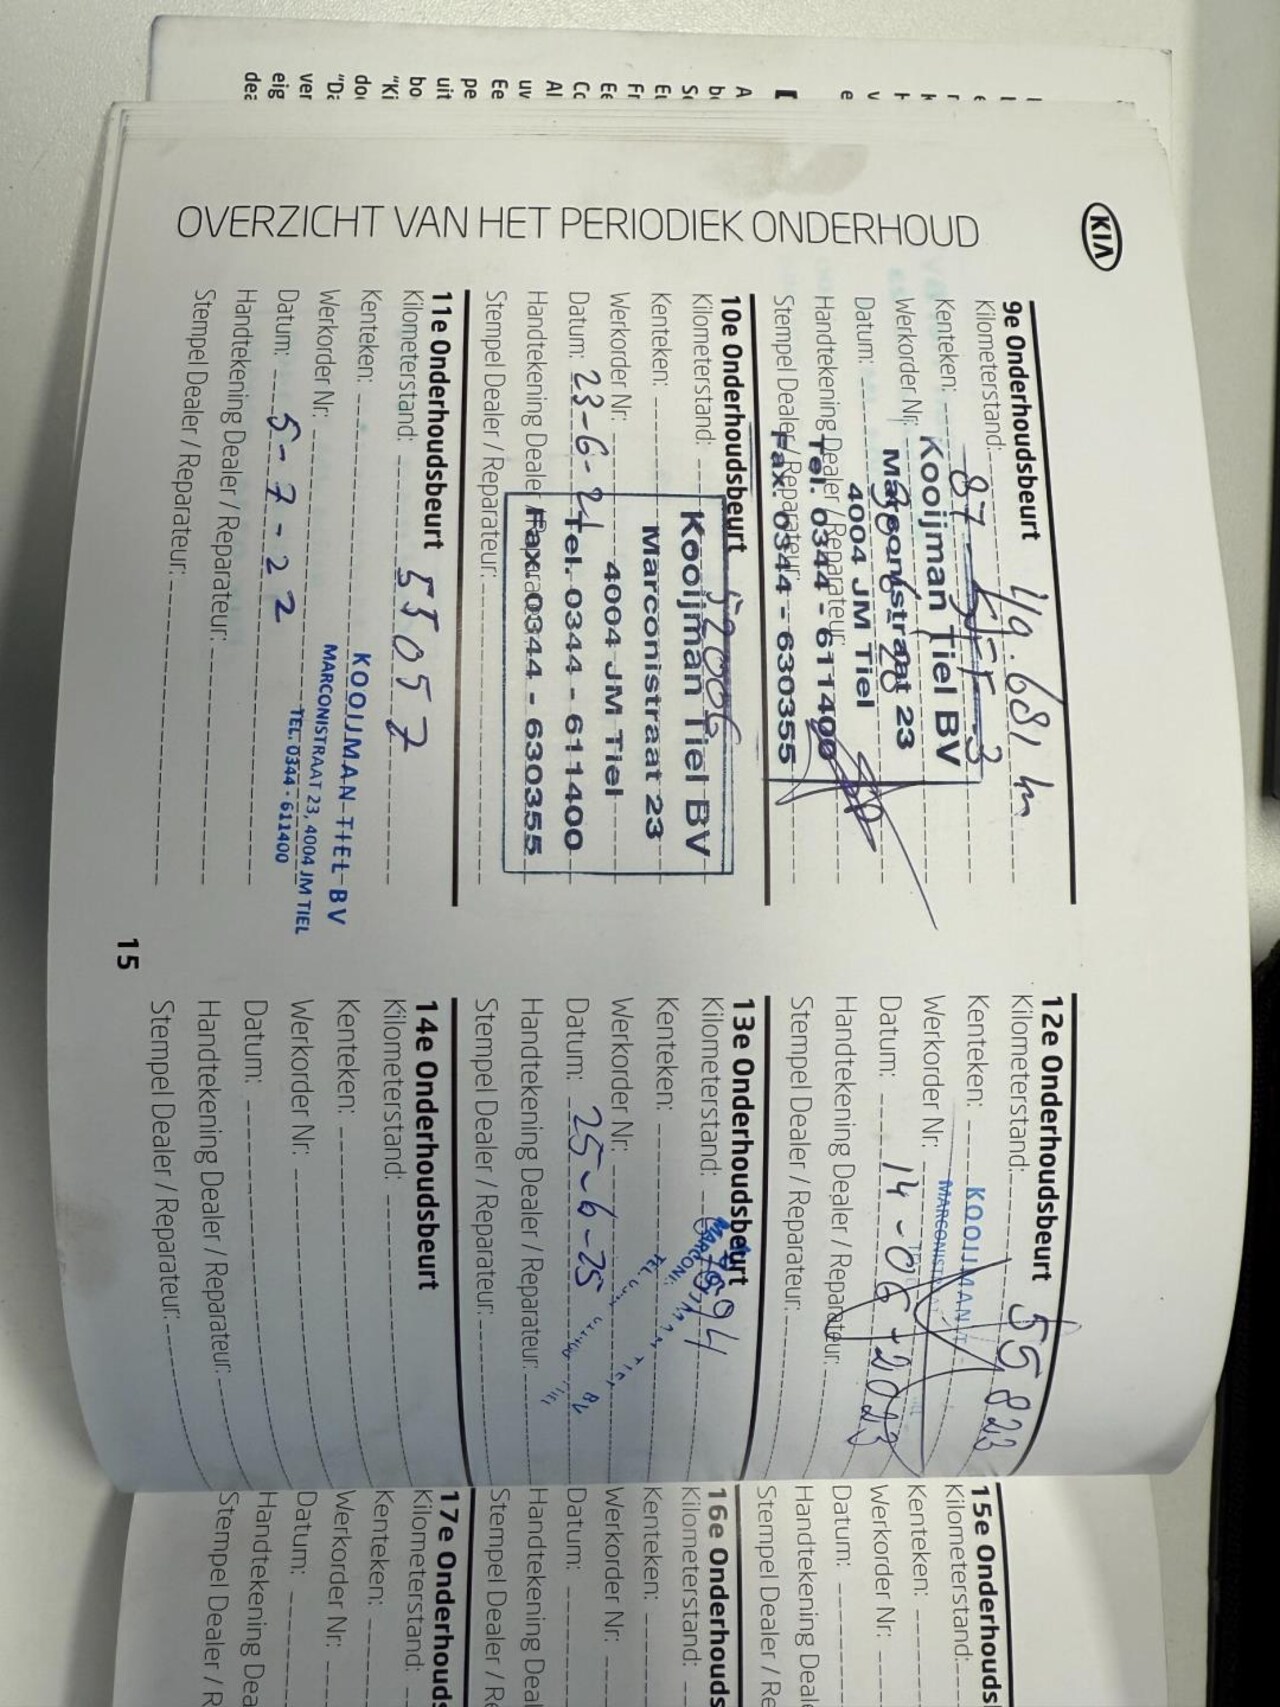 KIA
OVERZICHT VAN HET PERIODIEK ONDERHOUD
9e Onderhoudsbeurt
Kilometerstand: 49.681 km
Kenteken: 87
Werkorder Nr:
Datum:
Handtekening Dealer / Reparateur:
Stempel Dealer / Reparateur:
Kooijman Tiel BV
Marconistraat 23
4004 JM Tiel
Tel. 0344 - 611400
Fax. 0344 - 630355
10e Onderhoudsbeurt
Kilometerstand: 52006
Kenteken:
Werkorder Nr:
Datum: 23-6-21
Handtekening Dealer / Reparateur:
Stempel Dealer / Reparateur:
Kooijman Tiel BV
Marconistraat 23
4004 JM Tiel
Tel. 0344 - 611400
Fax. 0344 - 630355
11e Onderhoudsbeurt
Kilometerstand: 55057
Kenteken:
Werkorder Nr:
Datum: 5-7-22
Handtekening Dealer / Reparateur:
Stempel Dealer / Reparateur:
KOOIJMAN TIEL BV
MARCONISTRAAT 23, 4004 JM TIEL
TEL. 0344 - 611400
15
12e Onderhoudsbeurt
Kilometerstand: 55823
Kenteken:
Werkorder Nr:
Datum: 14-06-2023
Handtekening Dealer / Reparateur:
Stempel Dealer / Reparateur:
KOOIJMAN
13e Onderhoudsbeurt
Kilometerstand:
Kenteken:
Werkorder Nr:
Datum: 25-6-25
Handtekening Dealer / Reparateur:
Stempel Dealer / Reparateur:
14e Onderhoudsbeurt
Kilometerstand:
Kenteken:
Werkorder Nr:
Datum:
Handtekening Dealer / Reparateur:
Stempel Dealer / Reparateur:
15e Onderhouds
Kilometerstand:
Kenteken:
Werkorder Nr:
Datum:
Handtekening Deale
Stempel Dealer / Re
16e Onderhouds
Kilometerstand:
Kenteken:
Werkorder Nr:
Datum:
Handtekening Deal
Stempel Dealer / Re
17e Onderhouds
Kilometerstand:
Kenteken:
Werkorder Nr:
Datum:
Handtekening Dea
Stempel Dealer / R